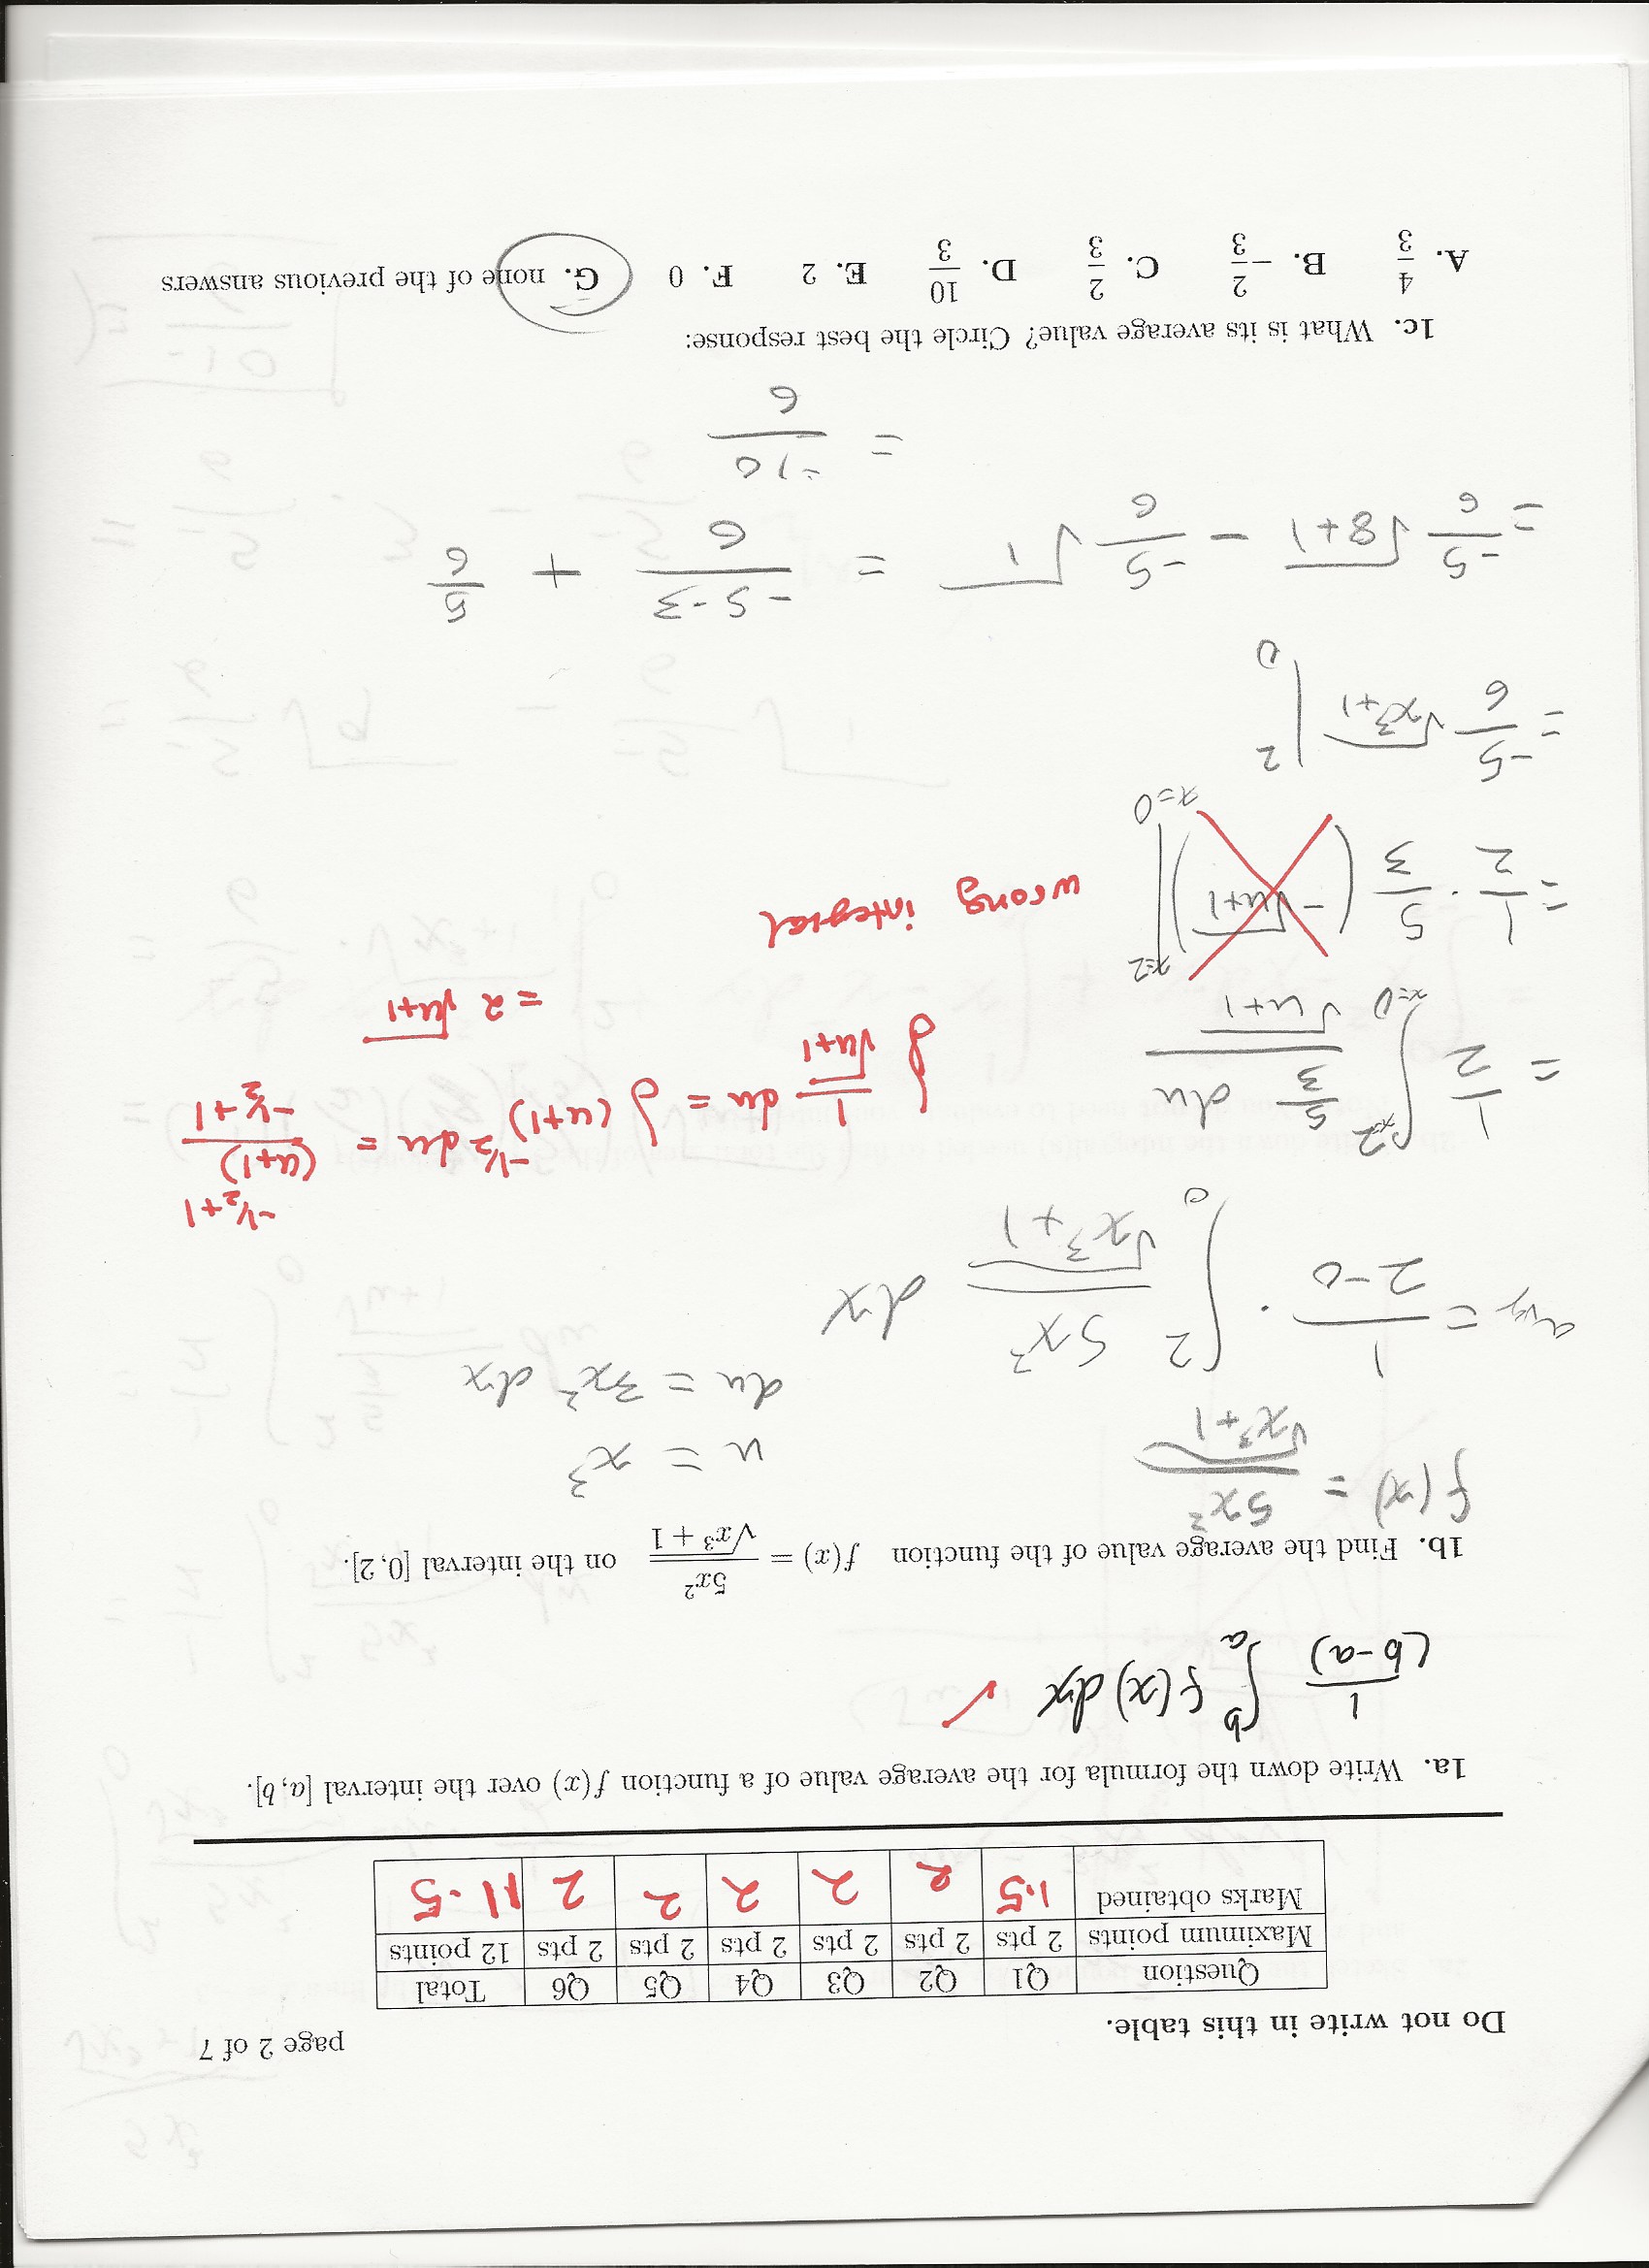 Do not write in this table. page 2 of 7
Question Q1 Q2 Q3 Q4 Q5 Q6 Total
Maximum points 2 pts 2 pts 2 pts 2 pts 2 pts 2 pts 12 points
Marks obtained 1.5 2 2 2 2 2 11.5
1a. Write down the formula for the average value of a function f(x) over the interval [a, b].
1/(b-a) ∫_a^b f(x) dx ✓
1b. Find the average value of the function f(x) = 5x²/√(x³ + 1) on the interval [0, 2].
f(x) = 5x²/√(x³+1)
u = x³
du = 3x² dx
avg = 1/(2-0) · ∫_0^2 5x²/√(x³+1) dx
= 1/2 ∫_{x=0}^{x=2} 5/3 du/√(u+1)
∫ 1/√(u+1) du = ∫ (u+1)^(-1/2) du = (u+1)^(-1/2+1)/(-1/2+1)
= 2 √(u+1)
= 1/2 · 5/3 (-√(u+1)) |_{x=0}^{x=2} wrong integral
= -5/6 √(x³+1) |_0^2
= -5/6 √(8+1) - -5/6 √1 = -5·3/6 + 5/6
= -10/6
1c. What is its average value? Circle the best response:
A. 4/3 B. -2/3 C. 2/3 D. 10/3 E. 2 F. 0 G. none of the previous answers